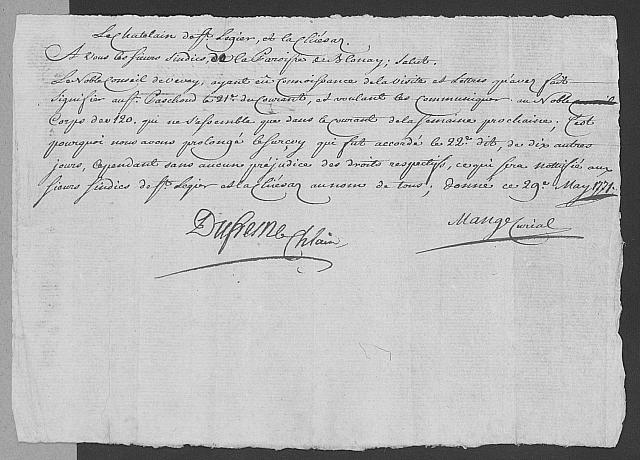 Le Chatelain de St. Legier, et la Chiésaz.
A Vous les sieurs sindics, de la Paroisse de Blonay; salut.
Le Noble Conseil de Vevey, ayant eu Connoissance de la Visite et Lettres qu'avez fait
signifier au Sr. Paschoud le 21e. du Courant, et voulant les Communiquer au Noble
Corps des 120, qui ne s'assemble que dans le courant de la semaine prochaine; C'est
pourquoi nous avons prolongé le surcoy, qui fut accordé le 22e. dit, de dix autres
jours, Cependant sans aucune préjudice des droits respectifs, ce qui sera notifié aux
sieurs sindics de St. Legier et la Chiésaz au nom de tous; donné ce 29e. May 1771.
Dufresne Chlain
Mange Curial